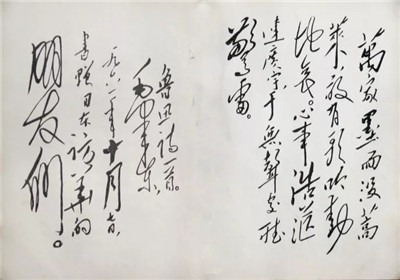 萬家墨面沒蒿
萊，敢有歌吟動
地哀。心事浩茫
連廣宇，于無聲處聽
驚雷。
魯迅詩一首。
毛澤東
一九六一年十月七日，
書贈日本訪華的
朋友們。